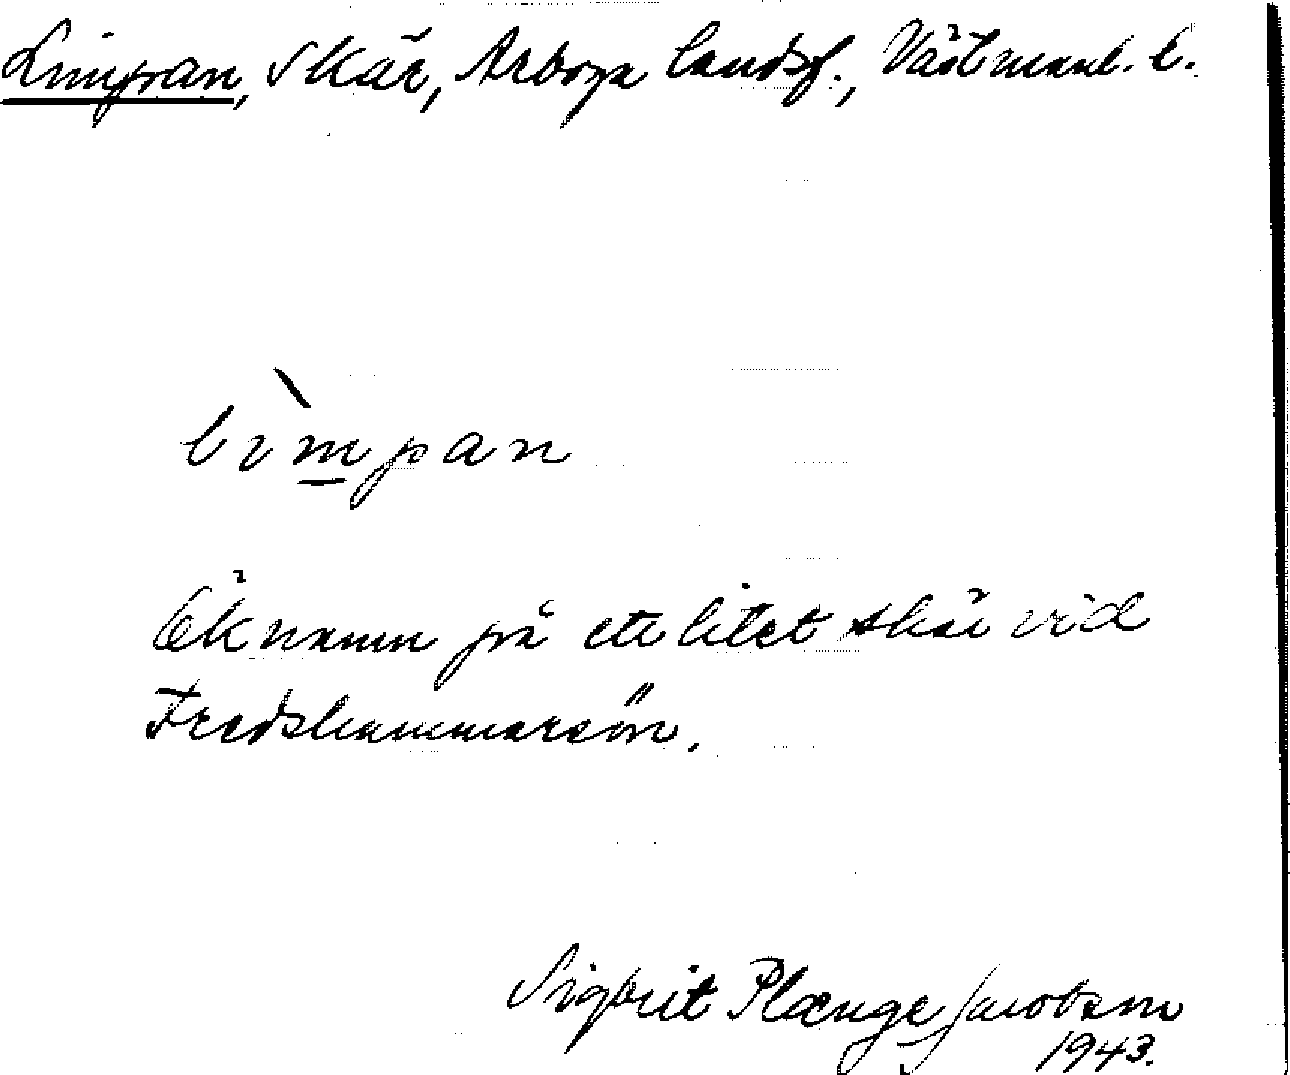 Limpan, Skär, Arboga landsf., Västmanl. l.
lìmpan
Öknamn på ett litet skär vid
Fredshammarsön.
Sigbrit Plænge Jacobson
1943.